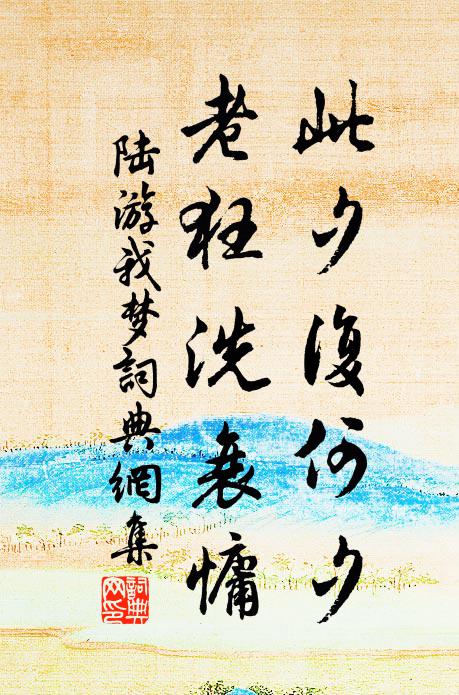 此夕復何夕
老狂洗衰慵
陆游我梦詞典網集
詞典